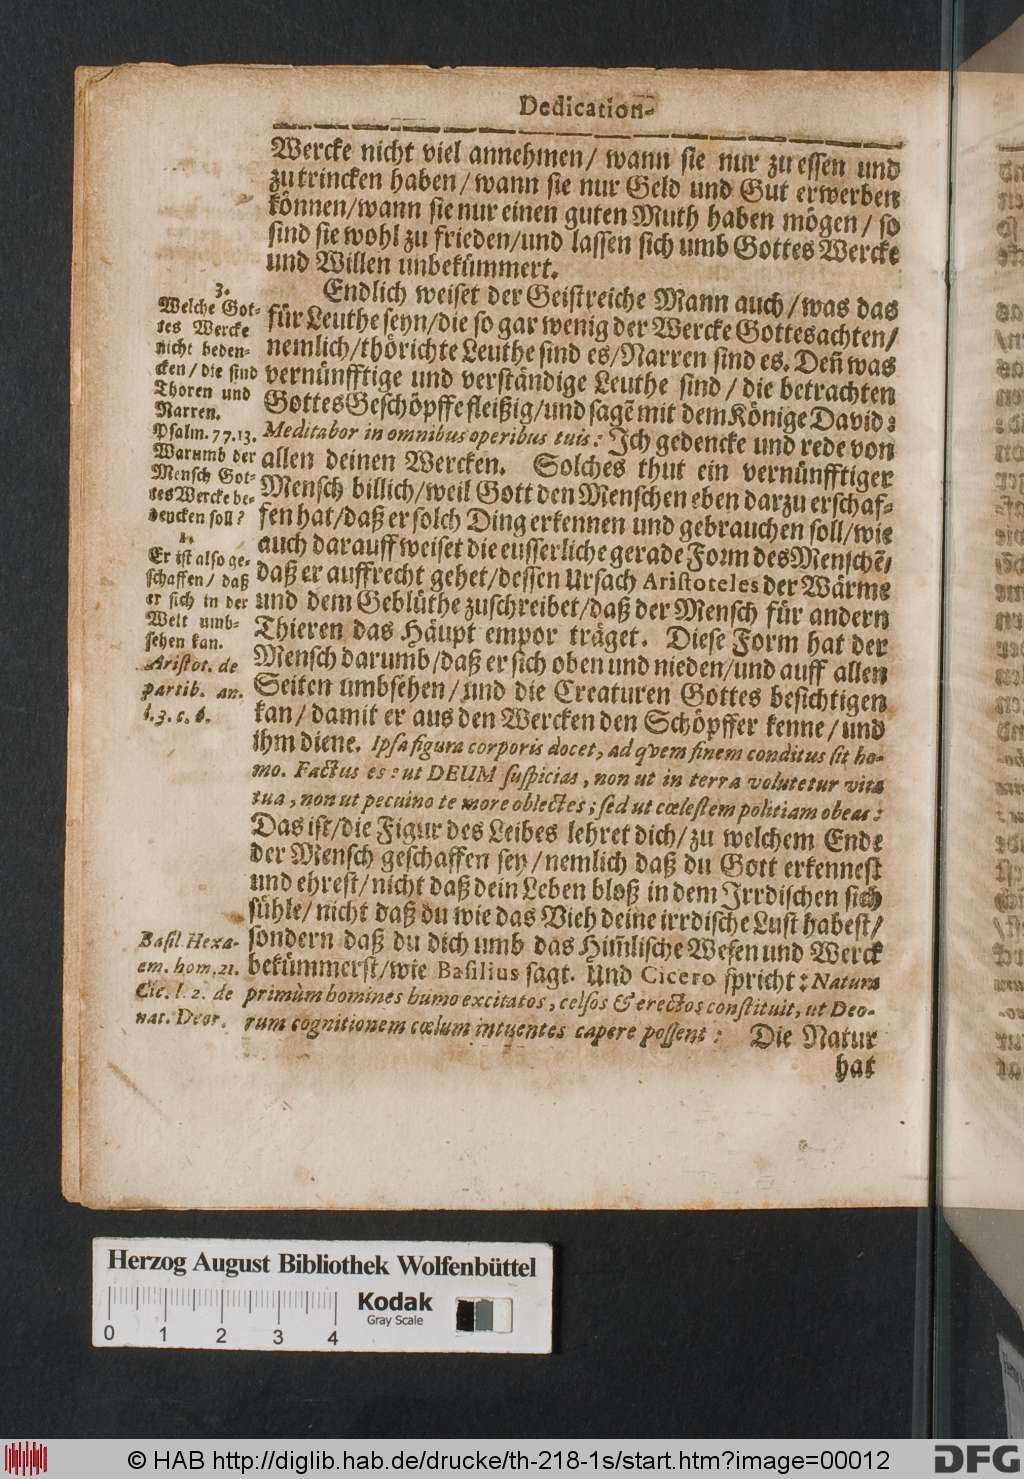 Dedication-
Wercke nicht viel annehmen/ wann sie nur zu essen und
zu trincken haben/ wann sie nur Geld und Gut erwerben
können/ wann sie nur einen guten Muth haben mögen/ so
sind sie wohl zu frieden/ und lassen sich umb Gottes Wercke
und Willen unbekümmert.
Endlich weiset der Geistreiche Mann auch/ was das
für Leuthe seyn/ die so gar wenig der Wercke Gottes achten/
nemlich/ thörichte Leuthe sind es/ Narren sind es. Deñ was
vernünfftige und verständige Leuthe sind/ die betrachten
Gottes Geschöpffe fleißig/ und sagẽ mit dem Könige David:
Meditabor in omnibus operibus tuis: Ich gedencke und rede von
allen deinen Wercken. Solches thut ein vernünfftiger
Mensch billich/ weil Gott den Menschen eben darzu erschaf-
fen hat/ daß er solch Ding erkennen und gebrauchen soll/ wie
auch darauff weiset die eusserliche gerade Form des Menschẽ/
daß er auffrecht gehet/ dessen Ursach Aristoteles der Wärme
und dem Geblüthe zuschreibet/ daß der Mensch für andern
Thieren das Häupt empor träget. Diese Form hat der
Mensch darumb/ daß er sich oben und nieden/ und auff allen
Seiten umbsehen/ und die Creaturen Gottes besichtigen
kan/ damit er aus den Wercken den Schöpffer kenne/ und
ihm diene. Ipsa figura corporis docet, ad qvem finem conditus sit ho-
mo. Factus es: ut DEUM suspicias, non ut in terra volutetur vita
tua, non ut pecuino te more oblectes; sed ut cœlestem politiam obeas:
Das ist/ die Figur des Leibes lehret dich/ zu welchem Ende
der Mensch geschaffen sey/ nemlich daß du Gott erkennest
und ehrest/ nicht daß dein Leben bloß in dem Irrdischen sich
fühle/ nicht daß du wie das Vieh deine irrdische Lust habest/
sondern daß du dich umb das Him̃lische Wesen und Werck
bekümmerst/ wie Basilius sagt. Und Cicero spricht: Natura
primùm homines humo excitatos, celsos & erectos constituit, ut Deo-
rum cognitionem cœlum intuentes capere possent: Die Natur
hat
3.
Welche Got-
tes Wercke
nicht beden-
cken/ die sind
Thoren und
Narren.
Psalm. 77. 13.
Warumb der
Mensch Got-
tes Wercke be-
dencken soll?
1.
Er ist also ge-
schaffen/ daß
er sich in der
Welt umb-
sehen kan.
Aristot. de
partib. an.
l. 3. c. 6.
Basil. Hexa-
em. hom. 21.
Cic. l. 2. de
nat. Deor.
Herzog August Bibliothek Wolfenbüttel
0 1 2 3 4
Kodak
Gray Scale
© HAB http://diglib.hab.de/drucke/th-218-1s/start.htm?image=00012
DFG